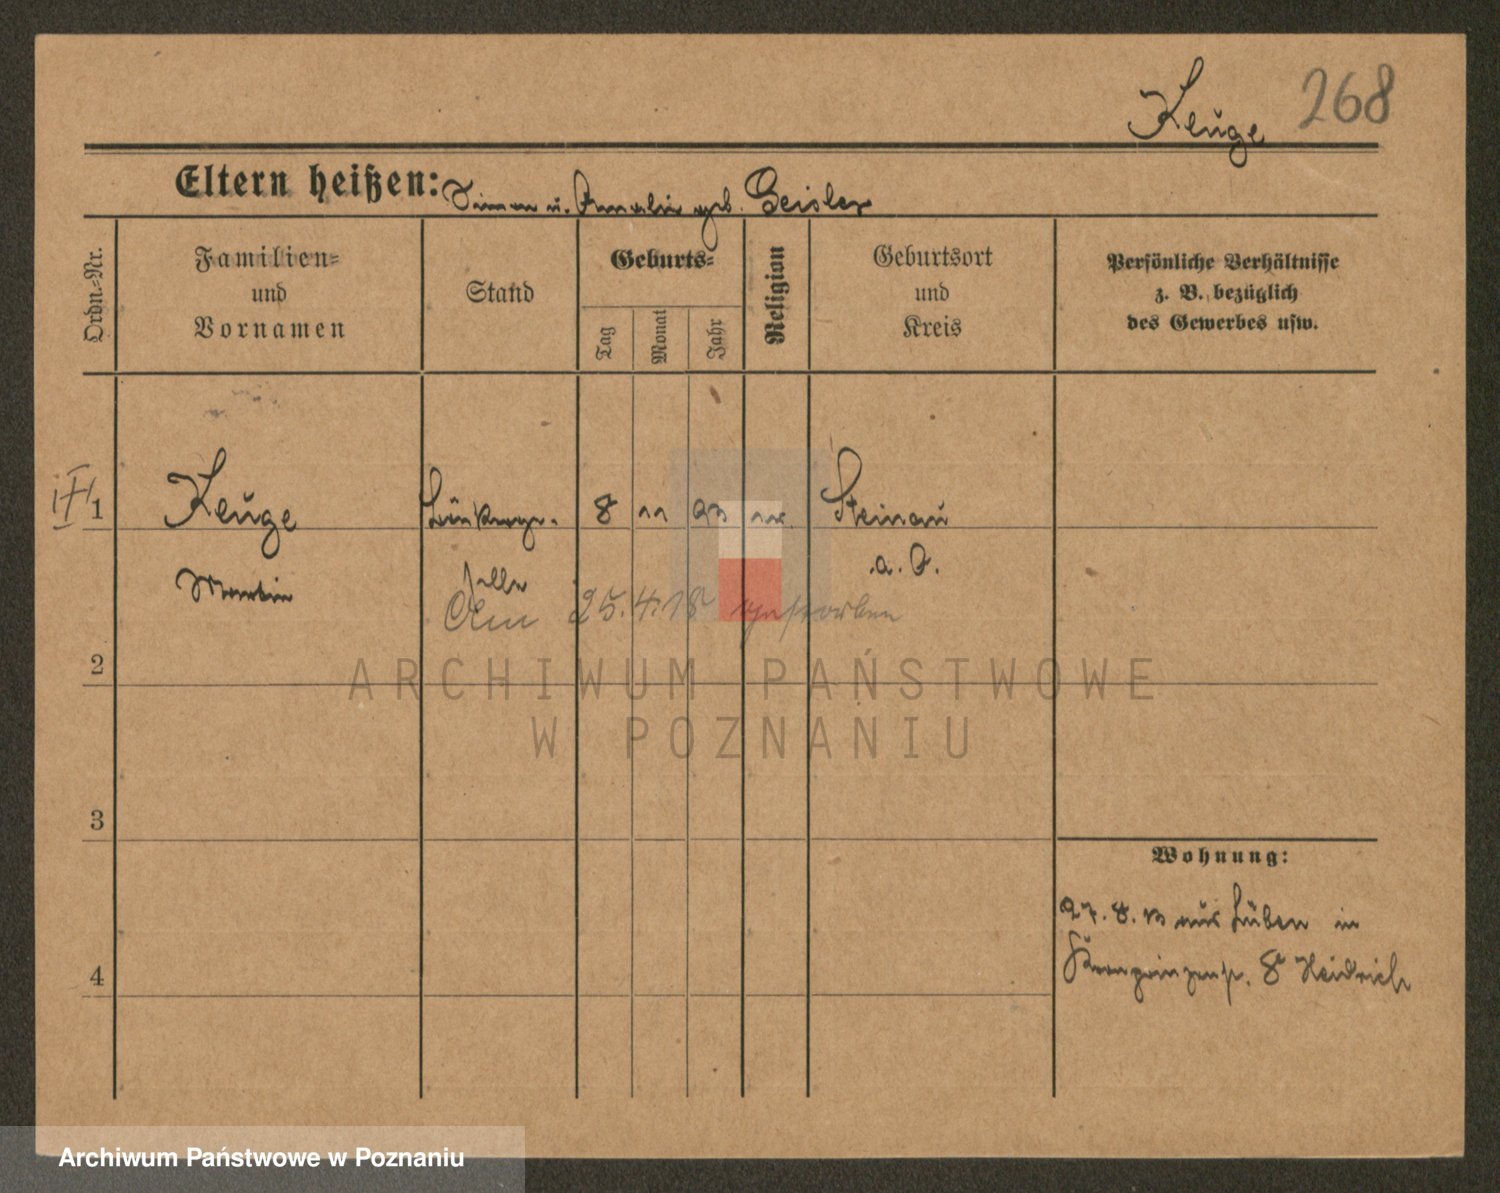 Keuge 268
Eltern heißen: Simon u. Amalie geb. Geisler
Ordn.-Nr.
Familien- und Vornamen
Stand
Geburts-
Tag
Monat
Jahr
Religion
Geburtsort und Kreis
Persönliche Verhältnisse
z. B. bezüglich
des Gewerbes usw.
1 Keuge 8 11 93 Steinau
Martin a. O.
Am 25.4.18 gestorben
2
3
4
Wohnung:
27. 8. 13 aus Lüben in
Kronprinzenstr. 8 Heidrich
ARCHIWUM PAŃSTWOWE
W POZNANIU
Archiwum Państwowe w Poznaniu